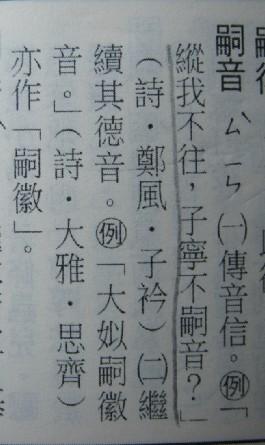 嗣音 ㄙ ㄧㄣ ㈠傳音信。例「
縱我不往，子寧不嗣音？」
（詩．鄭風．子衿）㈡繼
續其德音。例「大姒嗣徽
音。」（詩．大雅．思齊）
亦作「嗣徽」。